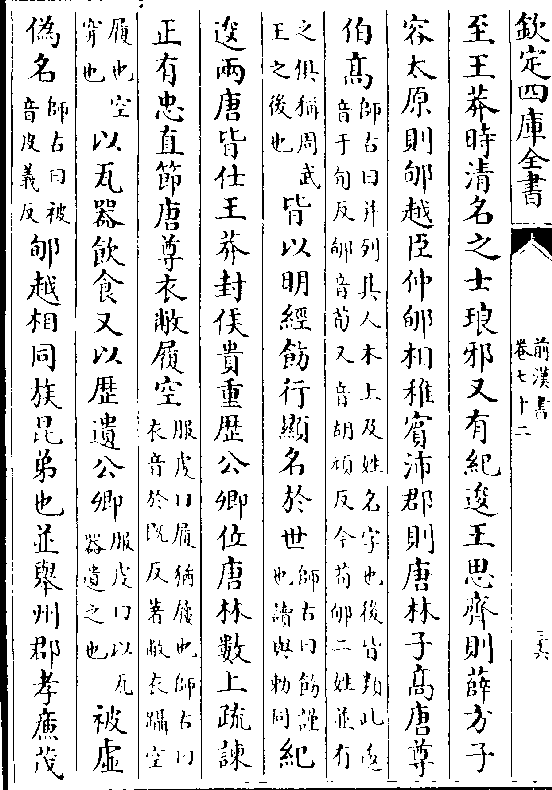 欽定四庫全書
前漢書
卷七十二
三六
至王莽時清名之士琅邪又有紀逡王思齊則薛方子
容太原則郇越臣仲郇相稚賓沛郡則唐林子髙唐尊
伯髙師古曰并列其人本土及姓名字也後皆類此逡音千旬反郇音荀又音胡頑反今荀郇二姓並有
之俱稱周武王之後也皆以明經飭行顯名於世師古曰飭謹也讀與勑同紀
逡兩唐皆仕王莽封侯貴重歴公卿位唐林數上疏諫
正有忠直節唐尊衣敝履空服虔曰履猶屨也師古曰衣音於既反著敝衣躡空
履也空穿也以瓦器飲食又以歴遺公卿服虔曰以瓦器遺之也被虛
偽名師古曰被音皮義反郇越相同族昆弟也並舉州郡孝亷茂